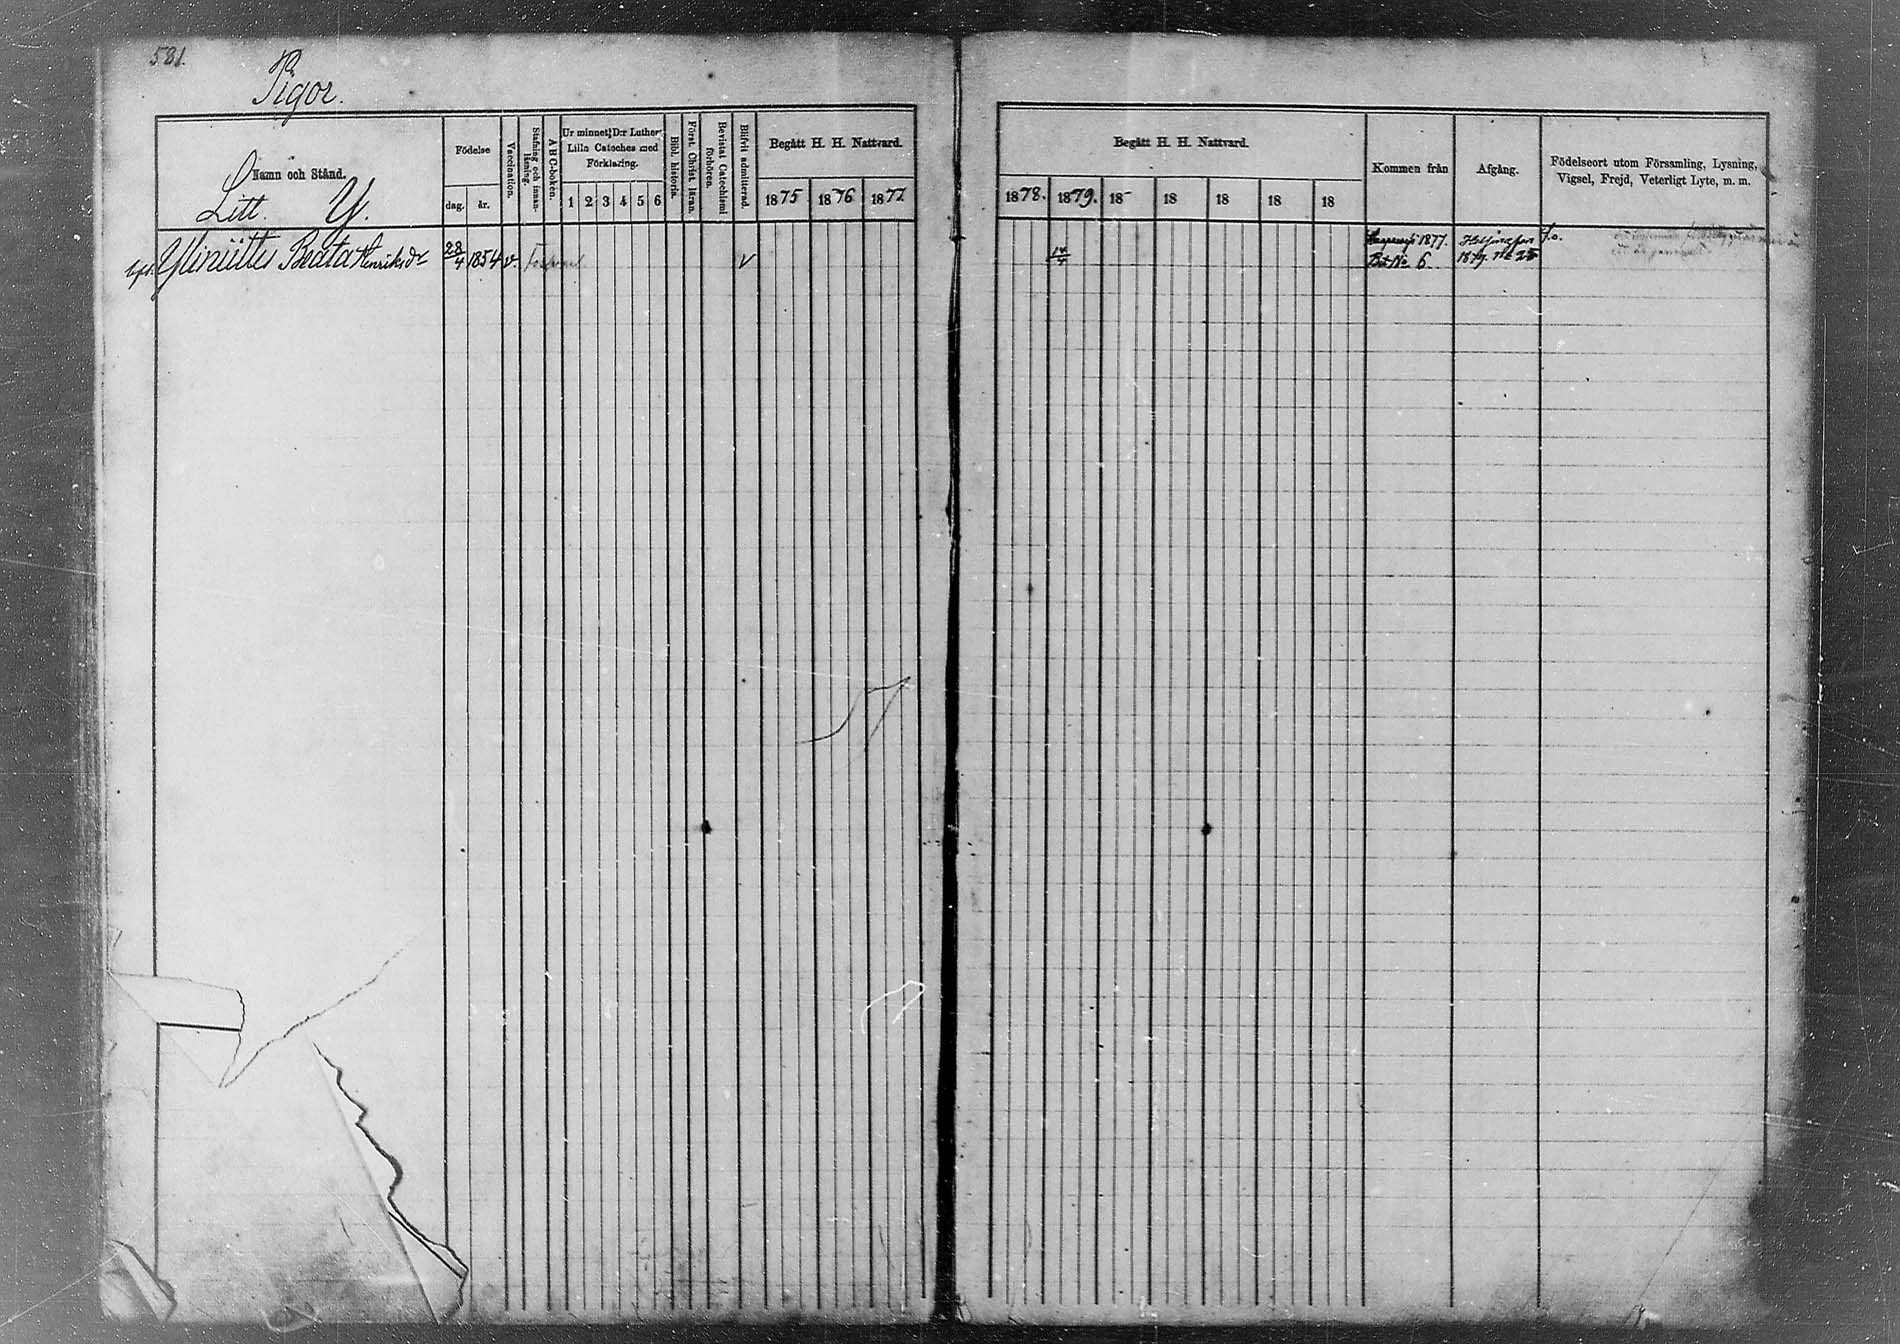 581.
Pigor.
Namn och Stånd.
Litt. Y.
Födelse
dag. år.
Vaccination.
Stafning och innan-
läsning.
A B C-boken.
Ur minnet: D:r Luthers
Lilla Cateches med
Förklaring.
1 2 3 4 5 6
Bibl. historia.
Först. Christ. läran.
Bevistat Catechismi
förhören.
Blifvit admitterad.
Begått H. H. Nattvard.
1875 1876 1877
Begått H. H. Nattvard.
1878. 1879. 18 18 18 18 18
Kommen från
Afgång.
Födelseort utom Församling, Lysning,
Vigsel, Frejd, Veterligt Lyte, m. m.
Beata Henriksdr 28/4 1854 v. v 14/4 1877. Helsingfors f.o.
Bet No 6. 1879. No 28